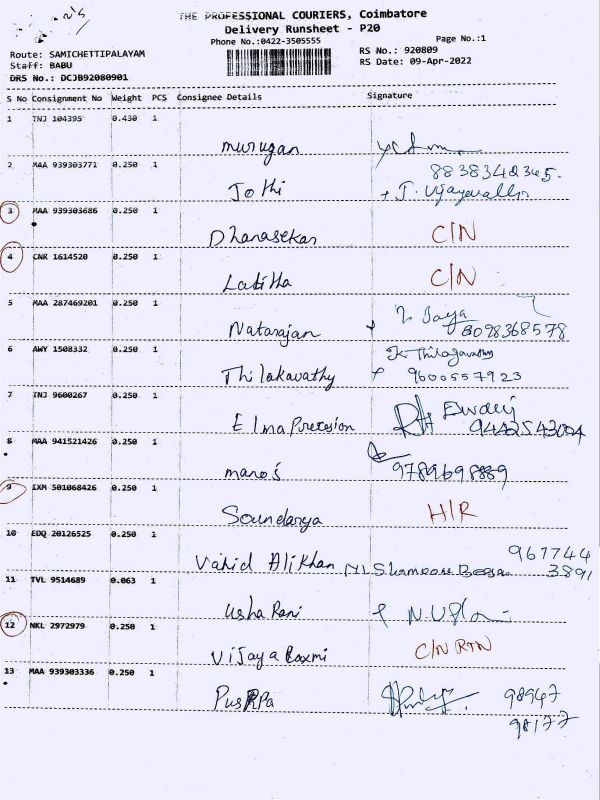 THE PROFESSIONAL COURIERS, Coimbatore
Delivery Runsheet - P20
Phone No.:0422-3505555
Page No.:1
Route: SAMICHETTIPALAYAM
RS No.: 920809
Staff: BABU
RS Date: 09-Apr-2022
DRS No.: DCJB92080901
S No Consignment No Weight PCS Consignee Details Signature
1 TNJ 104395 0.430 1
Murugan
2 MAA 939303771 0.250 1
8838342345
Jothi J. Vijayavalli
3 MAA 939303686 0.250 1
Dhanasekar C/N
4 CNR 1614520 0.250 1
Lalitha C/N
5 MAA 287469201 0.250 1
Jaya
Natarajan 8098368578
6 AWY 1508332 0.250 1
K. Thilagavathy
Thilakavathy 9600557923
7 TNJ 9600267 0.250 1
Elna Precesion 9442543004
8 MAA 941521426 0.250 1
manoj 9789698889
9 IXM 501068426 0.250 1
Soundarya H/R
10 EDQ 20126525 0.250 1
967744
Vahid Alikhan 3891
11 TVL 9514689 0.063 1
Usha Rani N. Usha
12 NKL 2972979 0.250 1
Vijaya Laxmi C/N RTN
13 MAA 939303336 0.250 1
Puspa 98947
98177